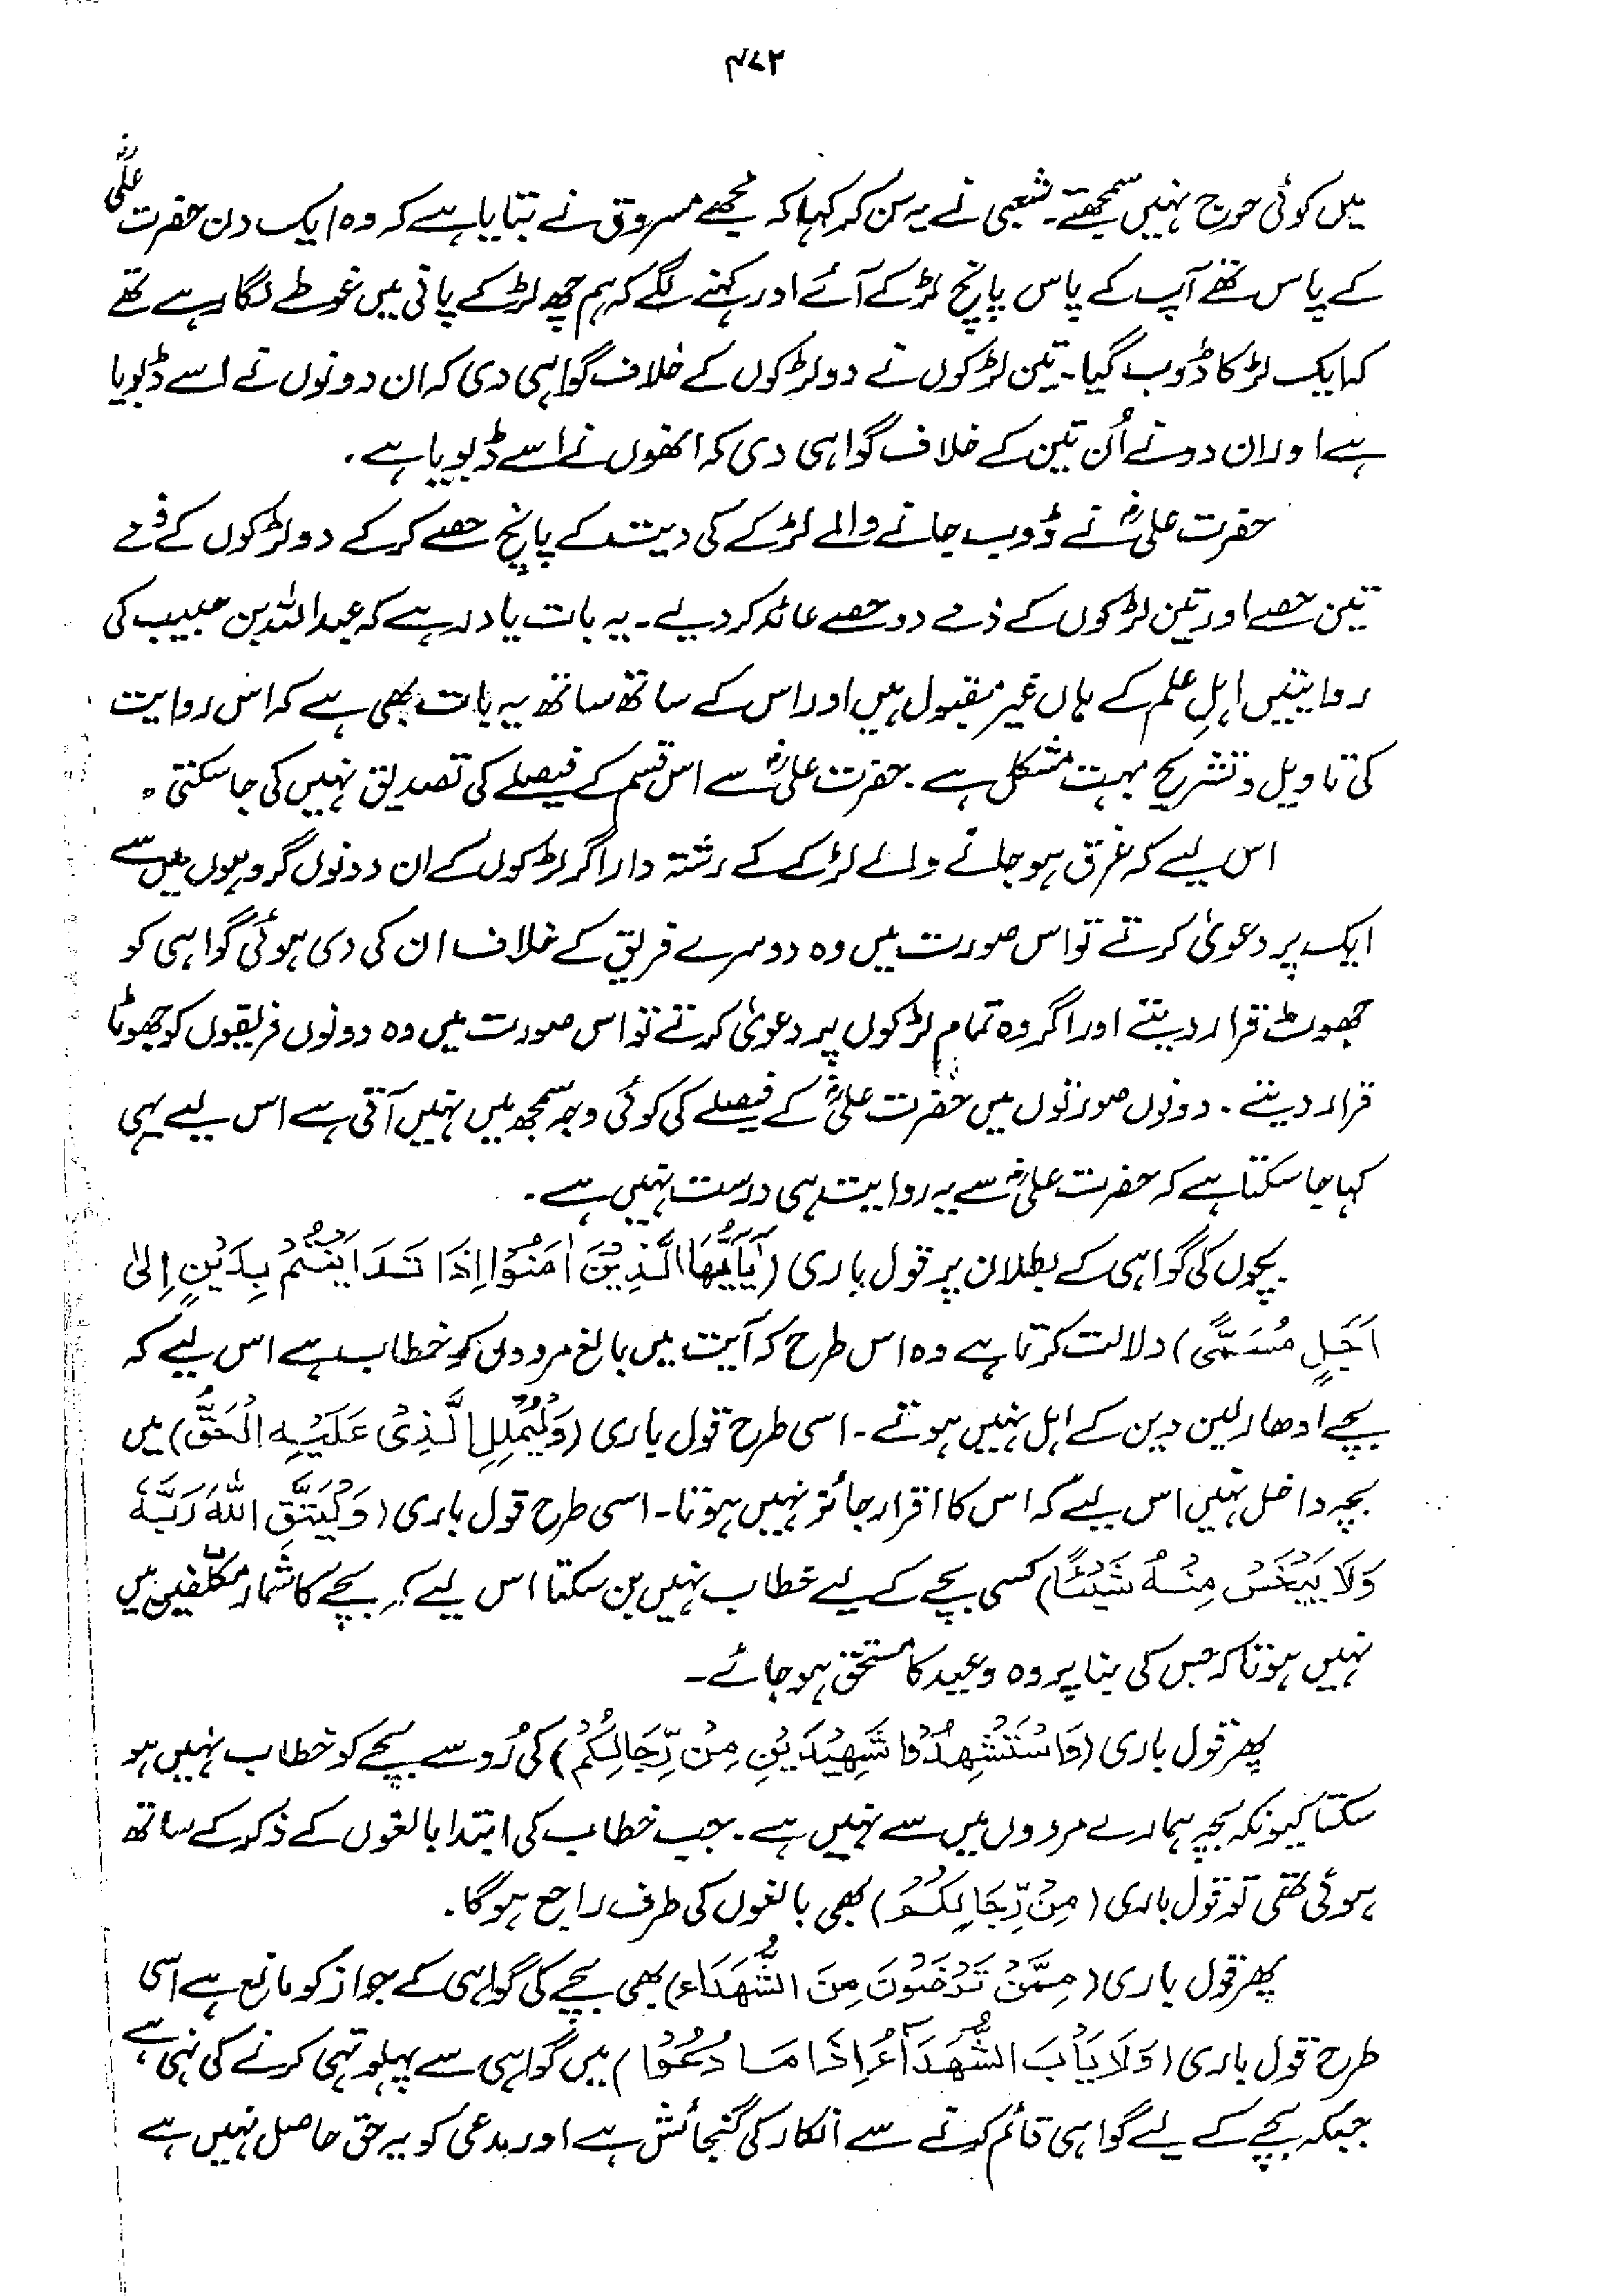 ۴۷۳
میں کوئی حرج نہیں سمجھتے۔ شعبی نے یہ سن کر کہا کہ مجھے مسروق نے بتایا ہے کہ وہ ایک دن حضرت علیؓ
کے پاس تھے آپ کے پاس پانچ لڑکے آئے اور کہنے لگے کہ ہم چھ لڑکے پانی میں غوطے لگا رہے تھے
کہ ایک لڑکا ڈوب گیا۔ تین لڑکوں نے دو لڑکوں کے خلاف گواہی دی کہ ان دونوں نے اسے ڈبویا
ہے اور ان دو نے اُن تین کے خلاف گواہی دی کہ انھوں نے اسے ڈبویا ہے۔
حضرت علیؓ نے ڈوب جانے والے لڑکے کی دیت کے پانچ حصے کر کے دو لڑکوں کے ذمے
تین حصے اور تین لڑکوں کے ذمے دو حصے عائد کر دیے۔ یہ بات یاد رہے کہ عبداللہ بن حبیب کی
روایتیں اہلِ علم کے ہاں غیر مقبول ہیں اور اس کے ساتھ ساتھ یہ بات بھی ہے کہ اس روایت
کی تاویل و تشریح بہت مشکل ہے۔ حضرت علیؓ سے اس قسم کے فیصلے کی تصدیق نہیں کی جا سکتی۔
اس لیے کہ غرق ہو جانے والے لڑکے کے رشتہ دار اگر لڑکوں کے ان دونوں گروہوں میں سے
ایک پر دعویٰ کرتے تو اس صورت میں وہ دوسرے فریق کے خلاف ان کی دی ہوئی گواہی کو
جھوٹ قرار دیتے اور اگر وہ تمام لڑکوں پر دعویٰ کرتے تو اس صورت میں وہ دونوں فریقوں کو جھوٹا
قرار دیتے۔ دونوں صورتوں میں حضرت علیؓ کے فیصلے کی کوئی وجہ سمجھ میں نہیں آتی ہے اس لیے یہی
کہا جا سکتا ہے کہ حضرت علیؓ سے یہ روایت ہی درست نہیں ہے۔
بچوں کی گواہی کے بطلان پر قول باری (يٰٓاَيُّهَا الَّذِيْنَ اٰمَنُوْٓا اِذَا تَدَايَنْتُمْ بِدَيْنٍ اِلٰٓى
اَجَلٍ مُّسَمًّى) دلالت کرتا ہے وہ اس طرح کہ آیت میں بالغ مردوں کو خطاب ہے اس لیے کہ
بچے ادھار لین دین کے اہل نہیں ہوتے۔ اسی طرح قول باری (وَلْيُمْلِلِ الَّذِىْ عَلَيْهِ الْحَقُّ) میں
بچہ داخل نہیں اس لیے کہ اس کا اقرار جائز نہیں ہوتا۔ اسی طرح قول باری (وَلْيَتَّقِ اللهَ رَبَّهٗ
وَلَا يَبْخَسْ مِنْهُ شَيْئًا) کسی بچے کے لیے خطاب نہیں بن سکتا اس لیے کہ بچے کا شمار مکلّفین میں
نہیں ہوتا کہ جس کی بنا پر وہ وعید کا مستحق ہو جائے۔
پھر قول باری (وَاسْتَشْهِدُوْا شَهِيْدَيْنِ مِنْ رِّجَالِكُمْ) کی رُو سے بچے کو خطاب نہیں ہو
سکتا کیونکہ بچہ ہمارے مردوں میں سے نہیں ہے۔ جب خطاب کی ابتدا بالغوں کے ذکر کے ساتھ
ہوئی تھی تو قول باری (مِنْ رِّجَالِكُمْ) بھی بالغوں کی طرف راجع ہو گا۔
پھر قول باری (مِمَّنْ تَرْضَوْنَ مِنَ الشُّهَدَاءِ) بھی بچے کی گواہی کے جواز کو مانع ہے اسی
طرح قول باری (وَلَا يَاْبَ الشُّهَدَآءُ اِذَا مَا دُعُوْا) میں گواہی سے پہلو تہی کرنے کی نہی ہے
جبکہ بچے کے لیے گواہی قائم کرنے سے انکار کی گنجائش ہے اور مدعی کو یہ حق حاصل نہیں ہے